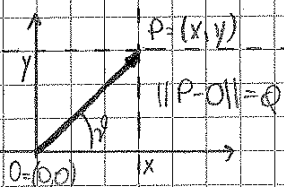 P=(x,y)
y
||P-O||=ϱ
ϑ
O=(0,0)
x